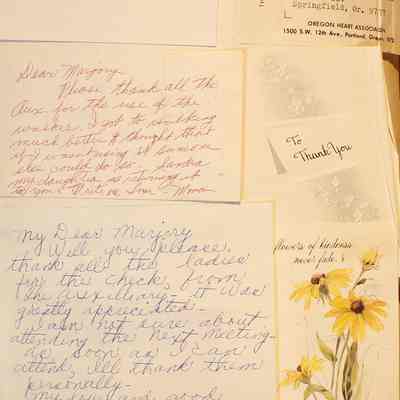 Springfield, Or. 977
OREGON HEART ASSOCIATION
1500 S.W. 12th Ave., Portland, Oregon 972
Dear Marjory,
Please thank all the
Aux for the use of the
walker. I got to walking
much better & thought that
if I wasn't using it someone
else could do so. Sandra
my daughter is returning it
Write me Love Mona
To
Thank You
My Dear Marjory
Will you please
thank all the ladies
for the check, from
the Auxiliary - it was
greatly appreciated -
I am not sure about
attending the next meeting -
as soon as I can
attend, I'll thank them
personally -
flowers of kindness
never fade.